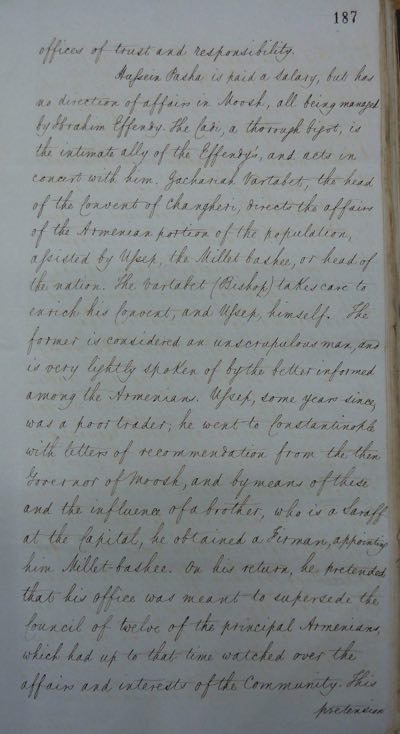 187
offices of trust and responsibility.
Hussein Pasha is paid a salary, but has
no direction of affairs in Moosh, all being managed
by Ibrahim Effendy. The Cadi, a thorough bigot, is
the intimate ally of the Effendy's, and acts in
concert with him. Zachariah Vartabet, the head
of the Convent of Changheri, directs the affairs
of the Armenian portion of the population,
assisted by Ussep, the Millet bashee, or head of
the nation. The Vartabet (Bishop) takes care to
enrich his Convent, and Ussep, himself. The
former is considered an unscrupulous man, and
is very lightly spoken of by the better informed
among the Armenians. Ussep, some years since,
was a poor trader; he went to Constantinople
with letters of recommendation from the then
Governor of Moosh, and by means of these
and the influence of a brother, who is a Saraff
at the Capital, he obtained a Firman, appointing
him Millet-bashee. On his return, he pretended
that his office was meant to supersede the
Council of twelve of the principal Armenians,
which had up to that time watched over the
affairs and interests of the Community. This
pretension